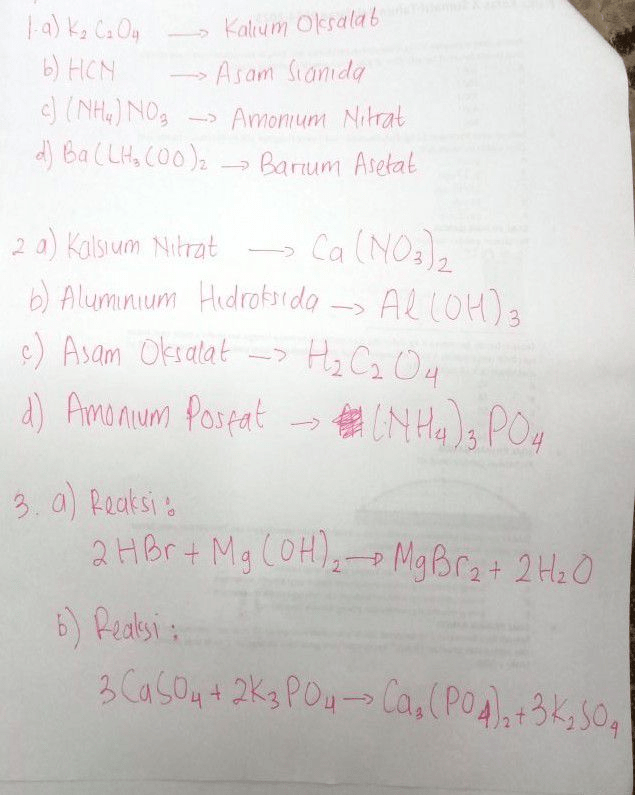 1. a) K₂C₂O₄ → Kalium Oksalat
b) HCN → Asam Sianida
c) (NH₄)NO₃ → Amonium Nitrat
d) Ba(CH₃COO)₂ → Barium Asetat
2 a) Kalsium Nitrat → Ca(NO₃)₂
b) Aluminium Hidroksida → Al(OH)₃
c) Asam Oksalat → H₂C₂O₄
d) Amonium Posfat → (NH₄)₃PO₄
3. a) Reaksi :
2HBr + Mg(OH)₂ → MgBr₂ + 2H₂O
b) Reaksi :
3CaSO₄ + 2K₃PO₄ → Ca₃(PO₄)₂ + 3K₂SO₄